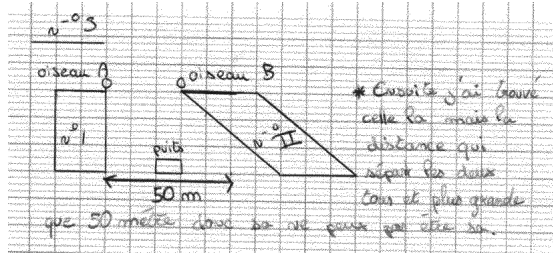 N° 3
oiseau A
oiseau B
N° 1
N° II
puits
50 m
* Ensuite j'ai trouvé
celle la mais la
distance qui
sépart les deux
tous et plus grande
que 50 mètre donc sa ne peux pas être sa.